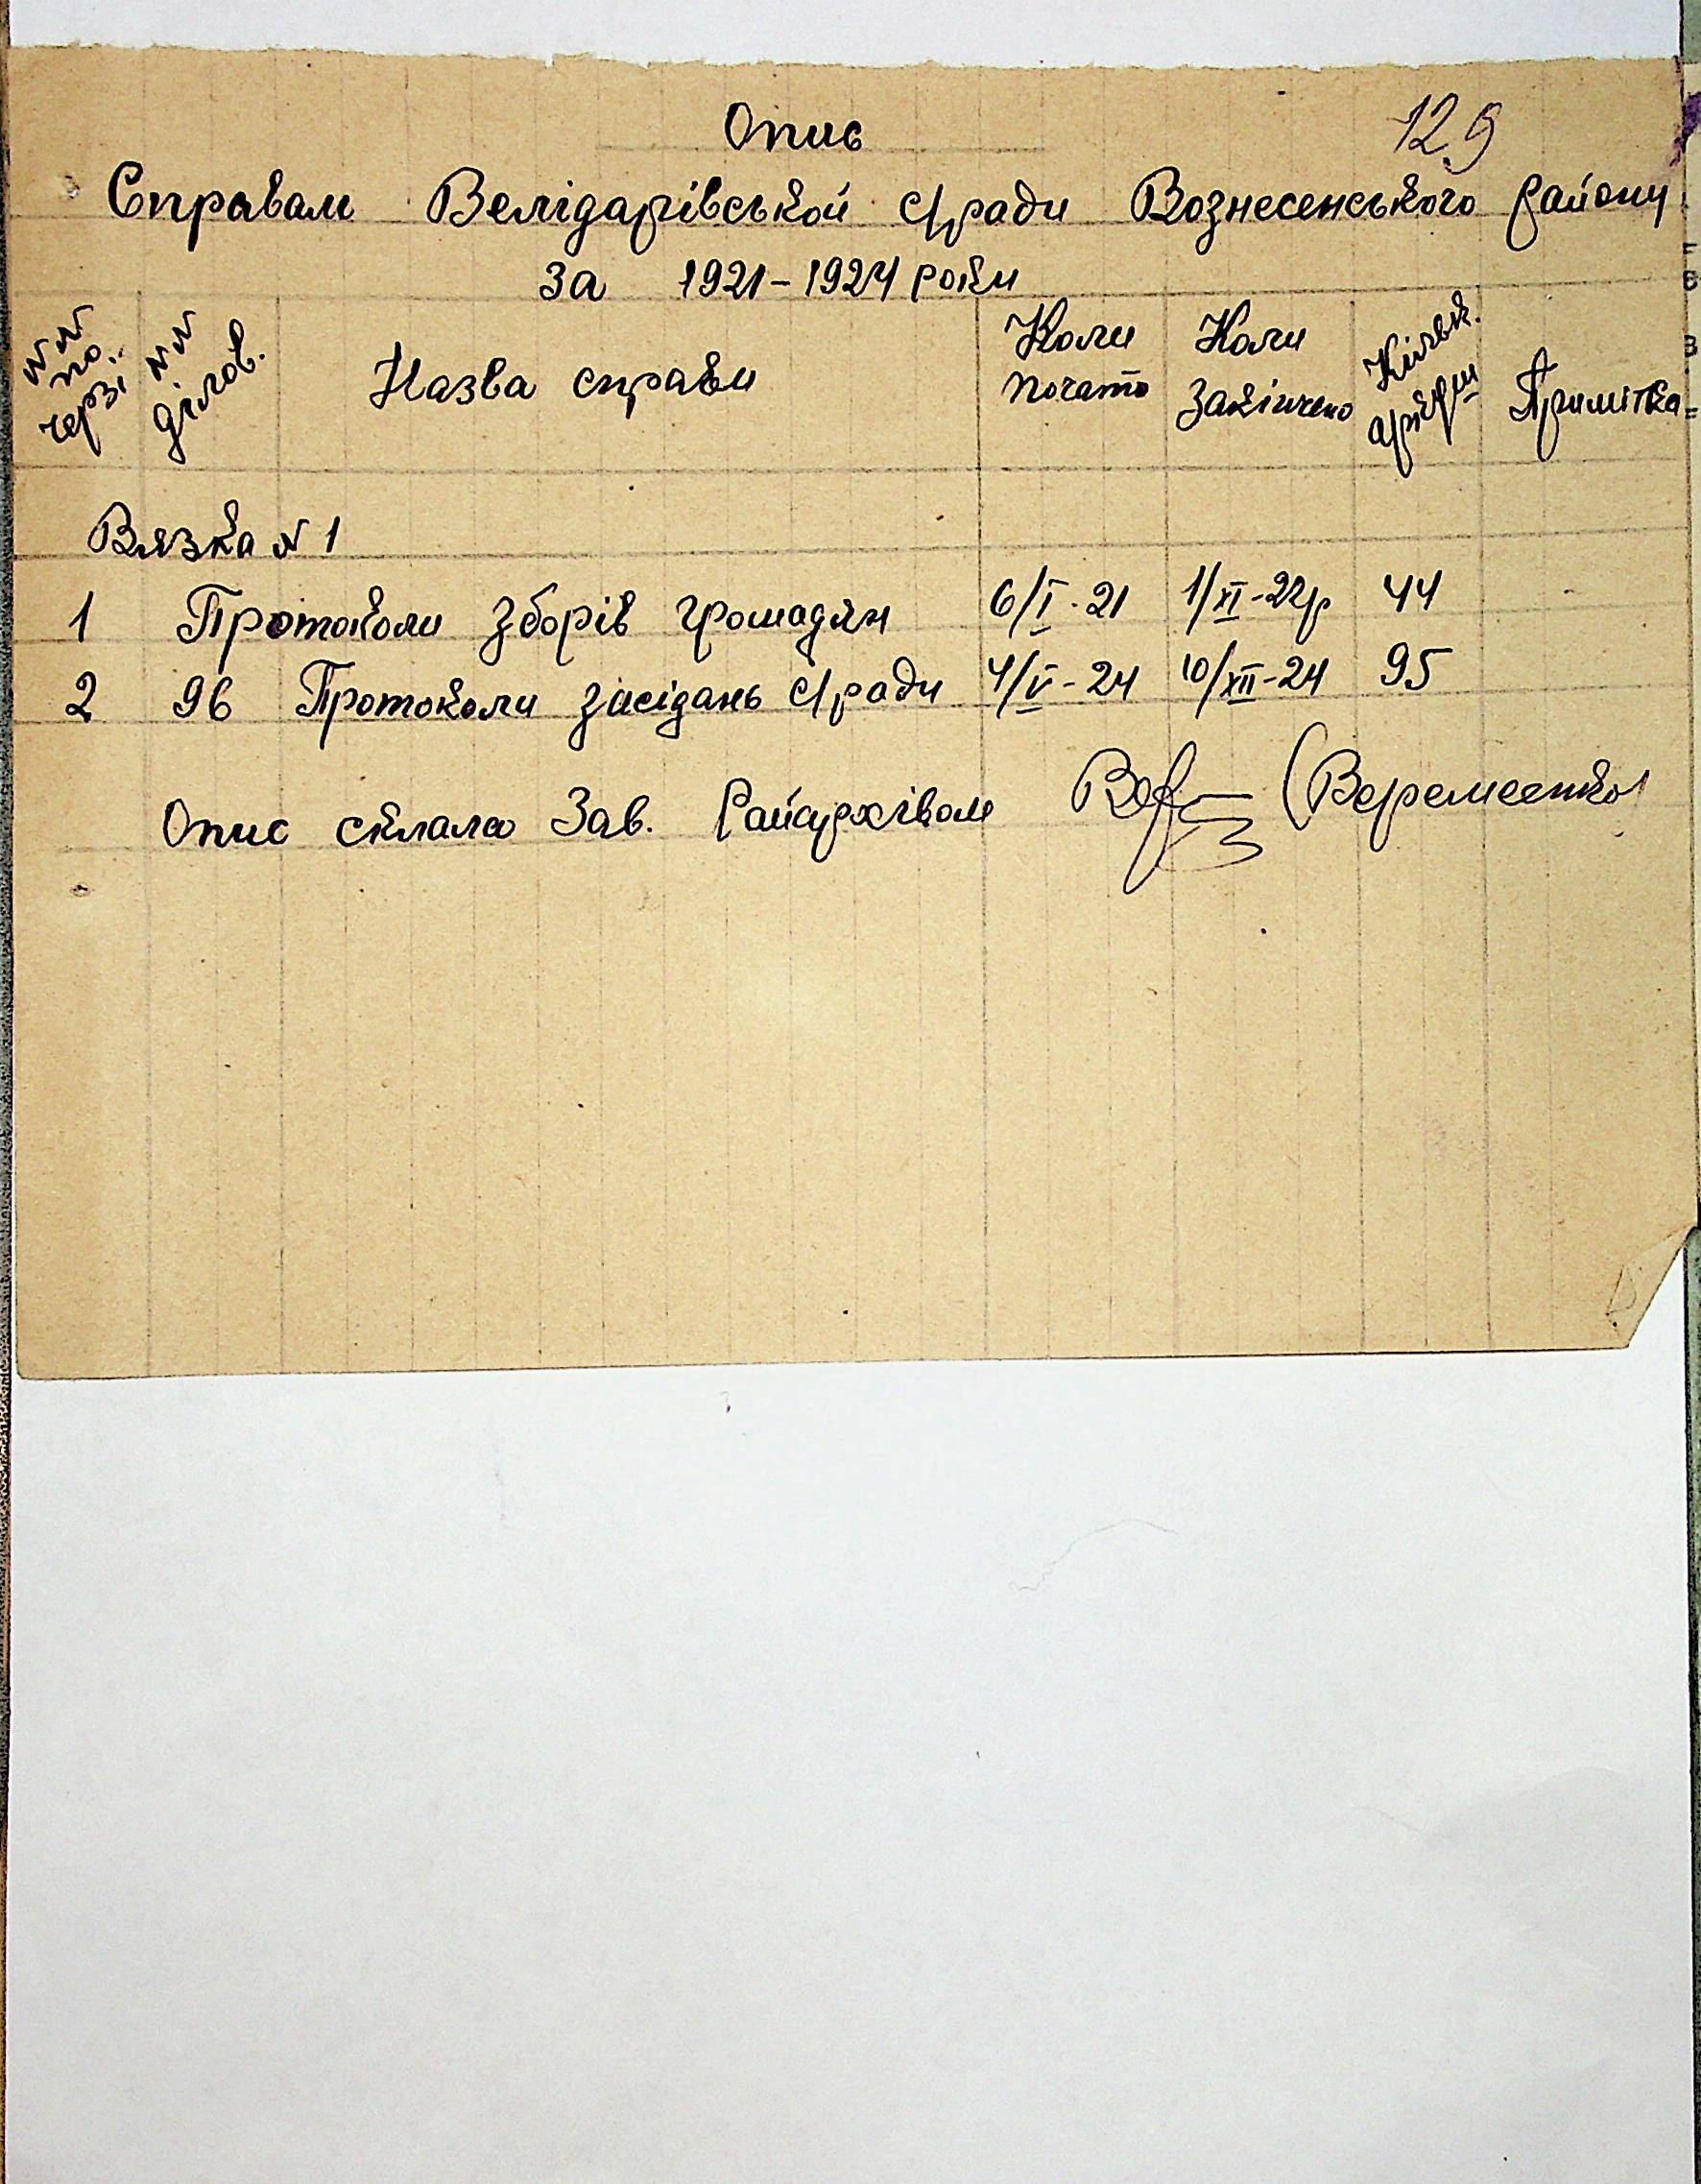 Опис
129
Справам Велідарівської с/ради Вознесенського району
за 1921-1924 роки
№№ по черзі №№ ділов. Назва справи Коли почато Коли закінчено Кільк. аркуш Примітка
Вязка №1
1 Протоколи зборів громадян 6/I-21 1/XI-22р 44
2 96 Протоколи засідань с/ради 4/V-24 10/XII-24 95
Опис склала Зав. Райархівом (Веремеенко)